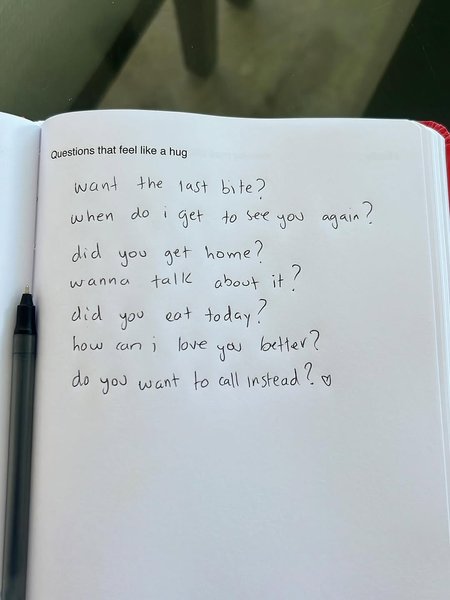 Questions that feel like a hug
want the last bite?
when do i get to see you again?
did you get home?
wanna talk about it?
did you eat today?
how can i love you better?
do you want to call instead? ♡